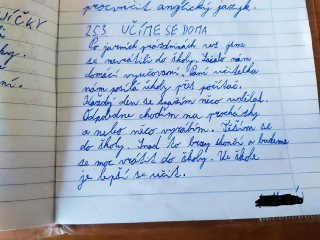 procvičit anglický jazyk.
25.3. UČÍME SE DOMA
Po jarních prázdninách už jsme
se nevrátili do školy. Začalo nám
domácí vyučování. Paní učitelka
nám posílá úkoly přes počítač.
Každý den se snažím něco udělat.
Odpoledne chodím na procházky
a nebo něco vyrábím. Těším se
do školy. Snad to brzy skončí a budeme
se moc vrátit do školy. Ve škole
je lepší se učit.